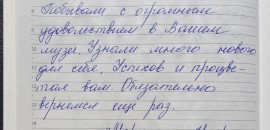 Побывали с огромным
удовольствием в Вашем
музее. Узнали много нового
для себя. Успехов и процве-
тая вам. Обязательно
вернемся еще раз.